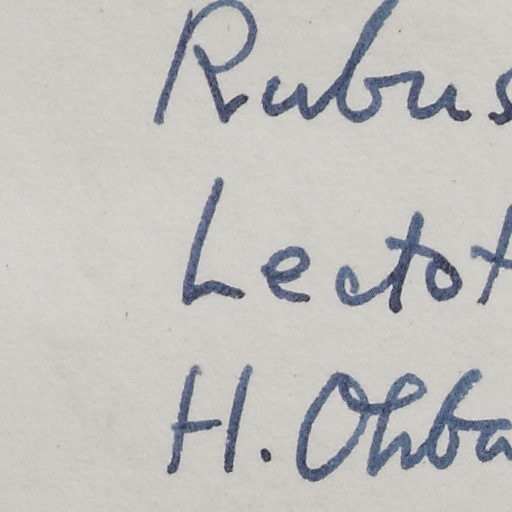 Rubus
Lectot
H. Ohba